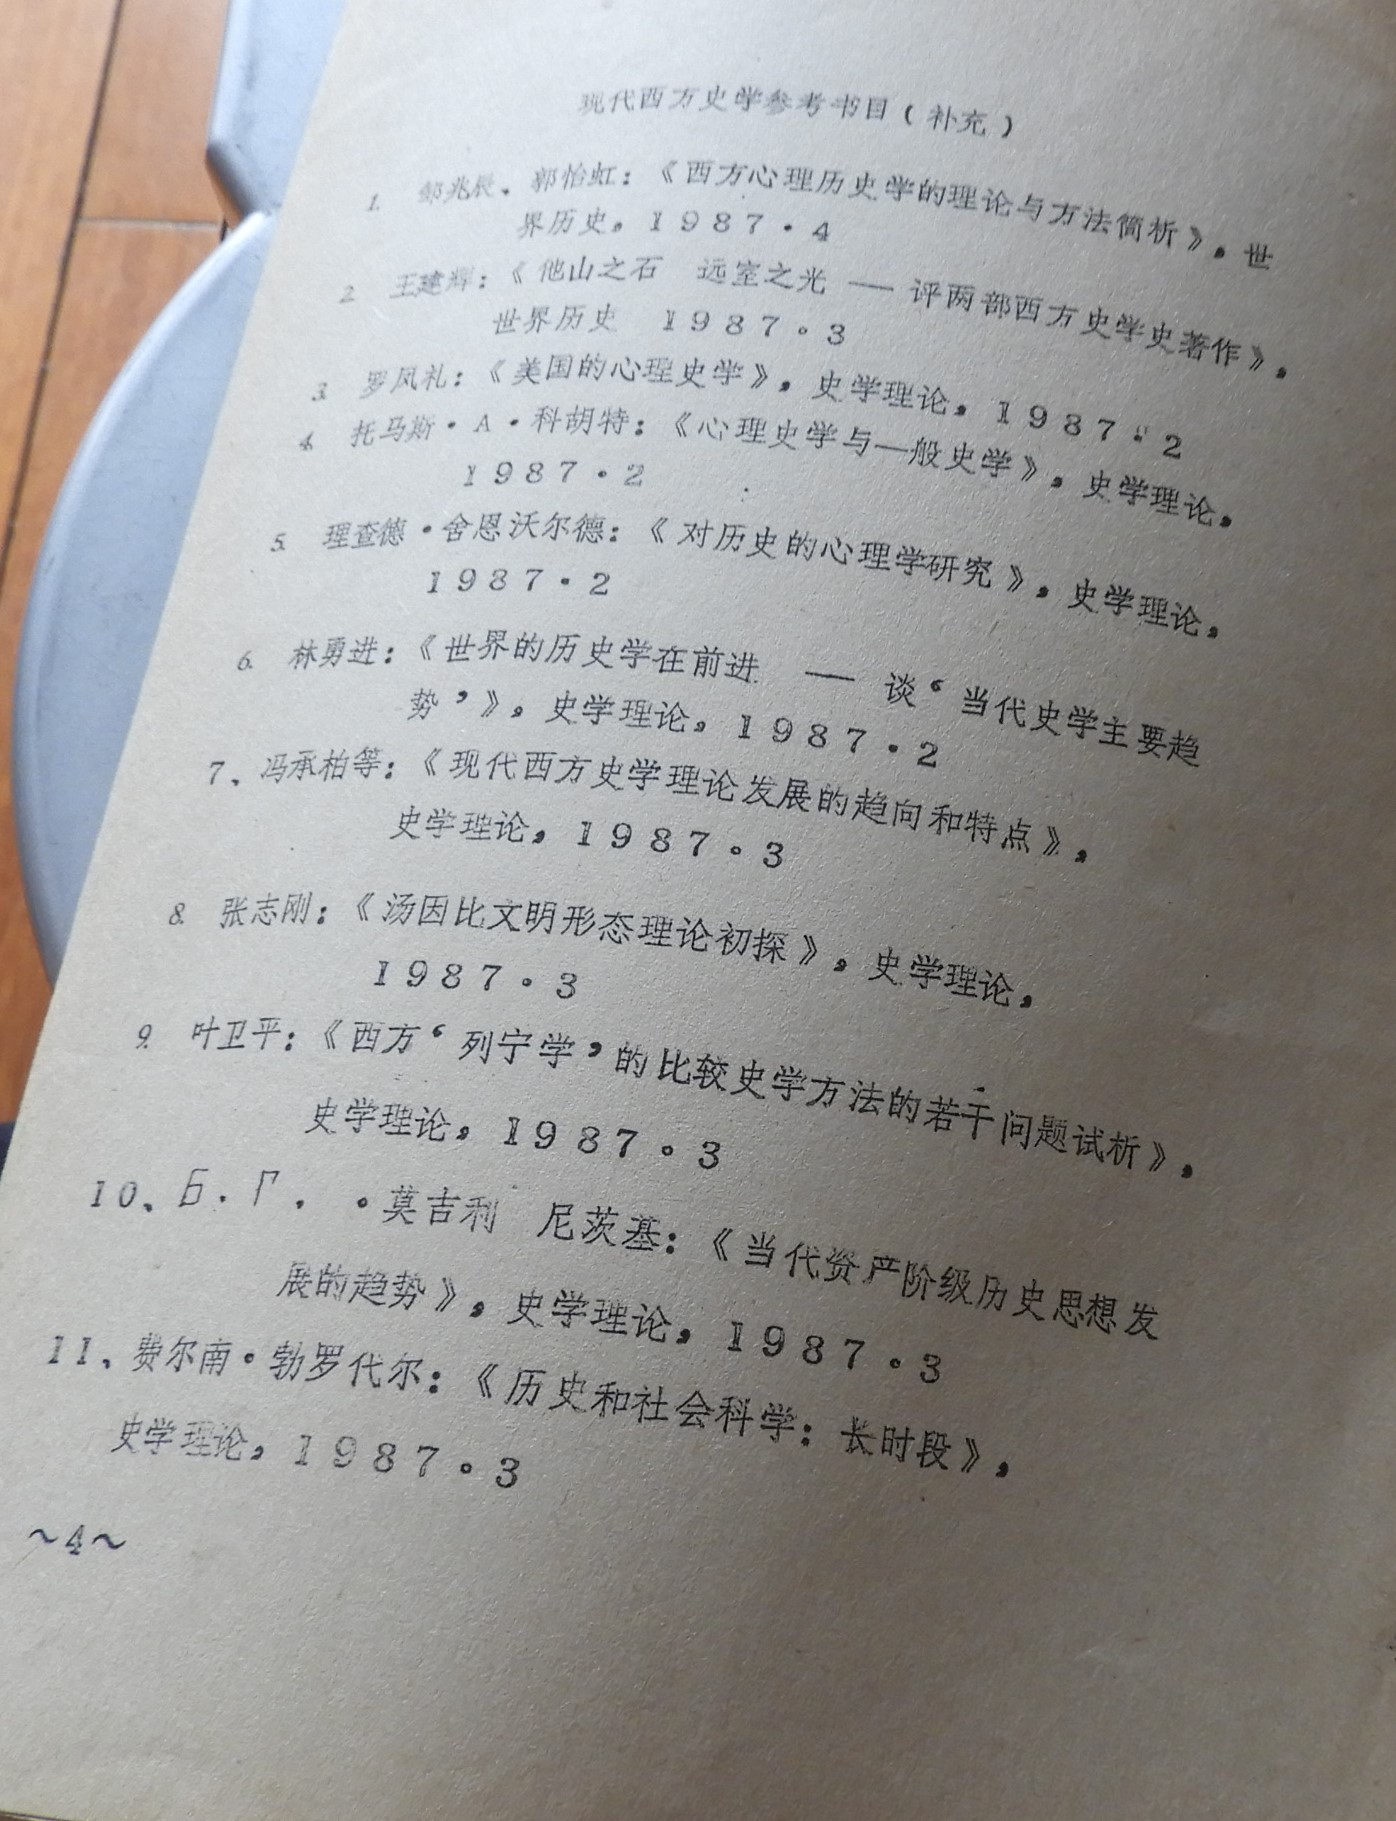 现代西方史学参考书目(补充)
1. 邹兆辰、郭怡虹:《西方心理历史学的理论与方法简析》,世
界历史,1987·4
2 王建辉:《他山之石 远室之光 — 评两部西方史学史著作》,
世界历史 1987。3
3 罗凤礼:《美国的心理史学》,史学理论,1987·2
4 托马斯·A·科胡特:《心理史学与一般史学》,史学理论,
1987·2
5. 理查德·舍恩沃尔德:《对历史的心理学研究》,史学理论,
1987·2
6. 林勇进:《世界的历史学在前进 — 谈‘当代史学主要趋
势’》,史学理论,1987·2
7、冯承柏等:《现代西方史学理论发展的趋向和特点》,
史学理论,1987。3
8. 张志刚:《汤因比文明形态理论初探》,史学理论,
1987。3
9. 叶卫平:《西方‘列宁学’的比较史学方法的若干问题试析》,
史学理论,1987。3
10、Б.Г. ·莫吉利 尼茨基:《当代资产阶级历史思想发
展的趋势》,史学理论,1987·3
11、费尔南·勃罗代尔:《历史和社会科学:长时段》,
史学理论,1987。3
~4~